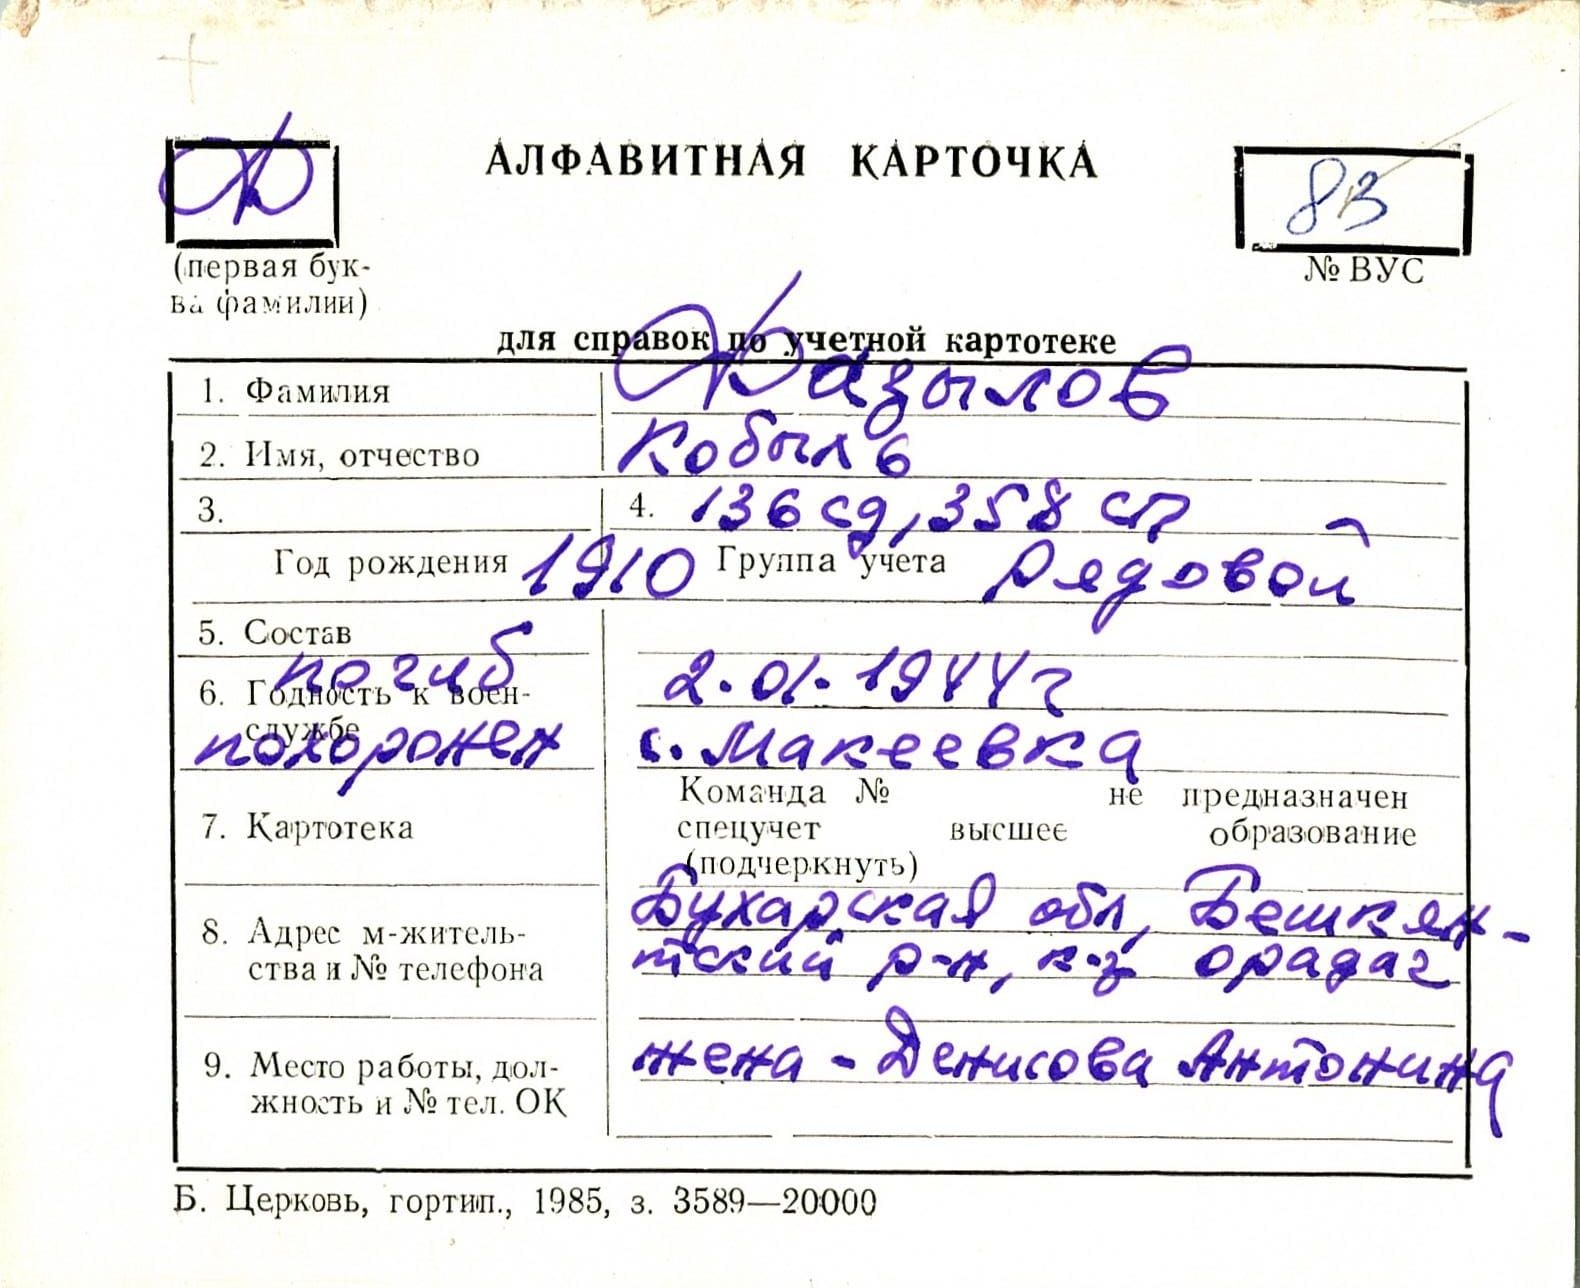 Ф
АЛФАВИТНАЯ КАРТОЧКА
83
(первая бук-
ва фамилии)
№ ВУС
для справок по учетной картотеке
1. Фамилия Фазылов
2. Имя, отчество Кобыль
3. 4. 136 сд, 358 сп
Год рождения 1910 Группа учета Рядовой
5. Состав
погиб 2.01.1944г
6. Годность к воен-
службе
похоронен с. Макеевка
7. Картотека
Команда № не предназначен
спецучет высшее образование
(подчеркнуть)
8. Адрес м-житель-
ства и № телефона
Бухарская обл, Бешкен-
тский р-н, к-з Орадаг
9. Место работы, дол-
жность и № тел. ОК
жена - Денисова Антонина
Б. Церковь, гортип., 1985, з. 3589—20000